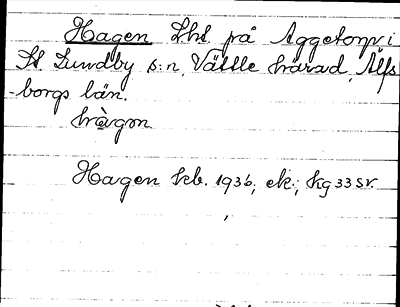 Hagen Lht på Aggetorp i
St Lundby s:n, Vättle härad, Älfs
-borgs län.
hàgen
Hagen kb. 1936; ek.; kg 33 sv.